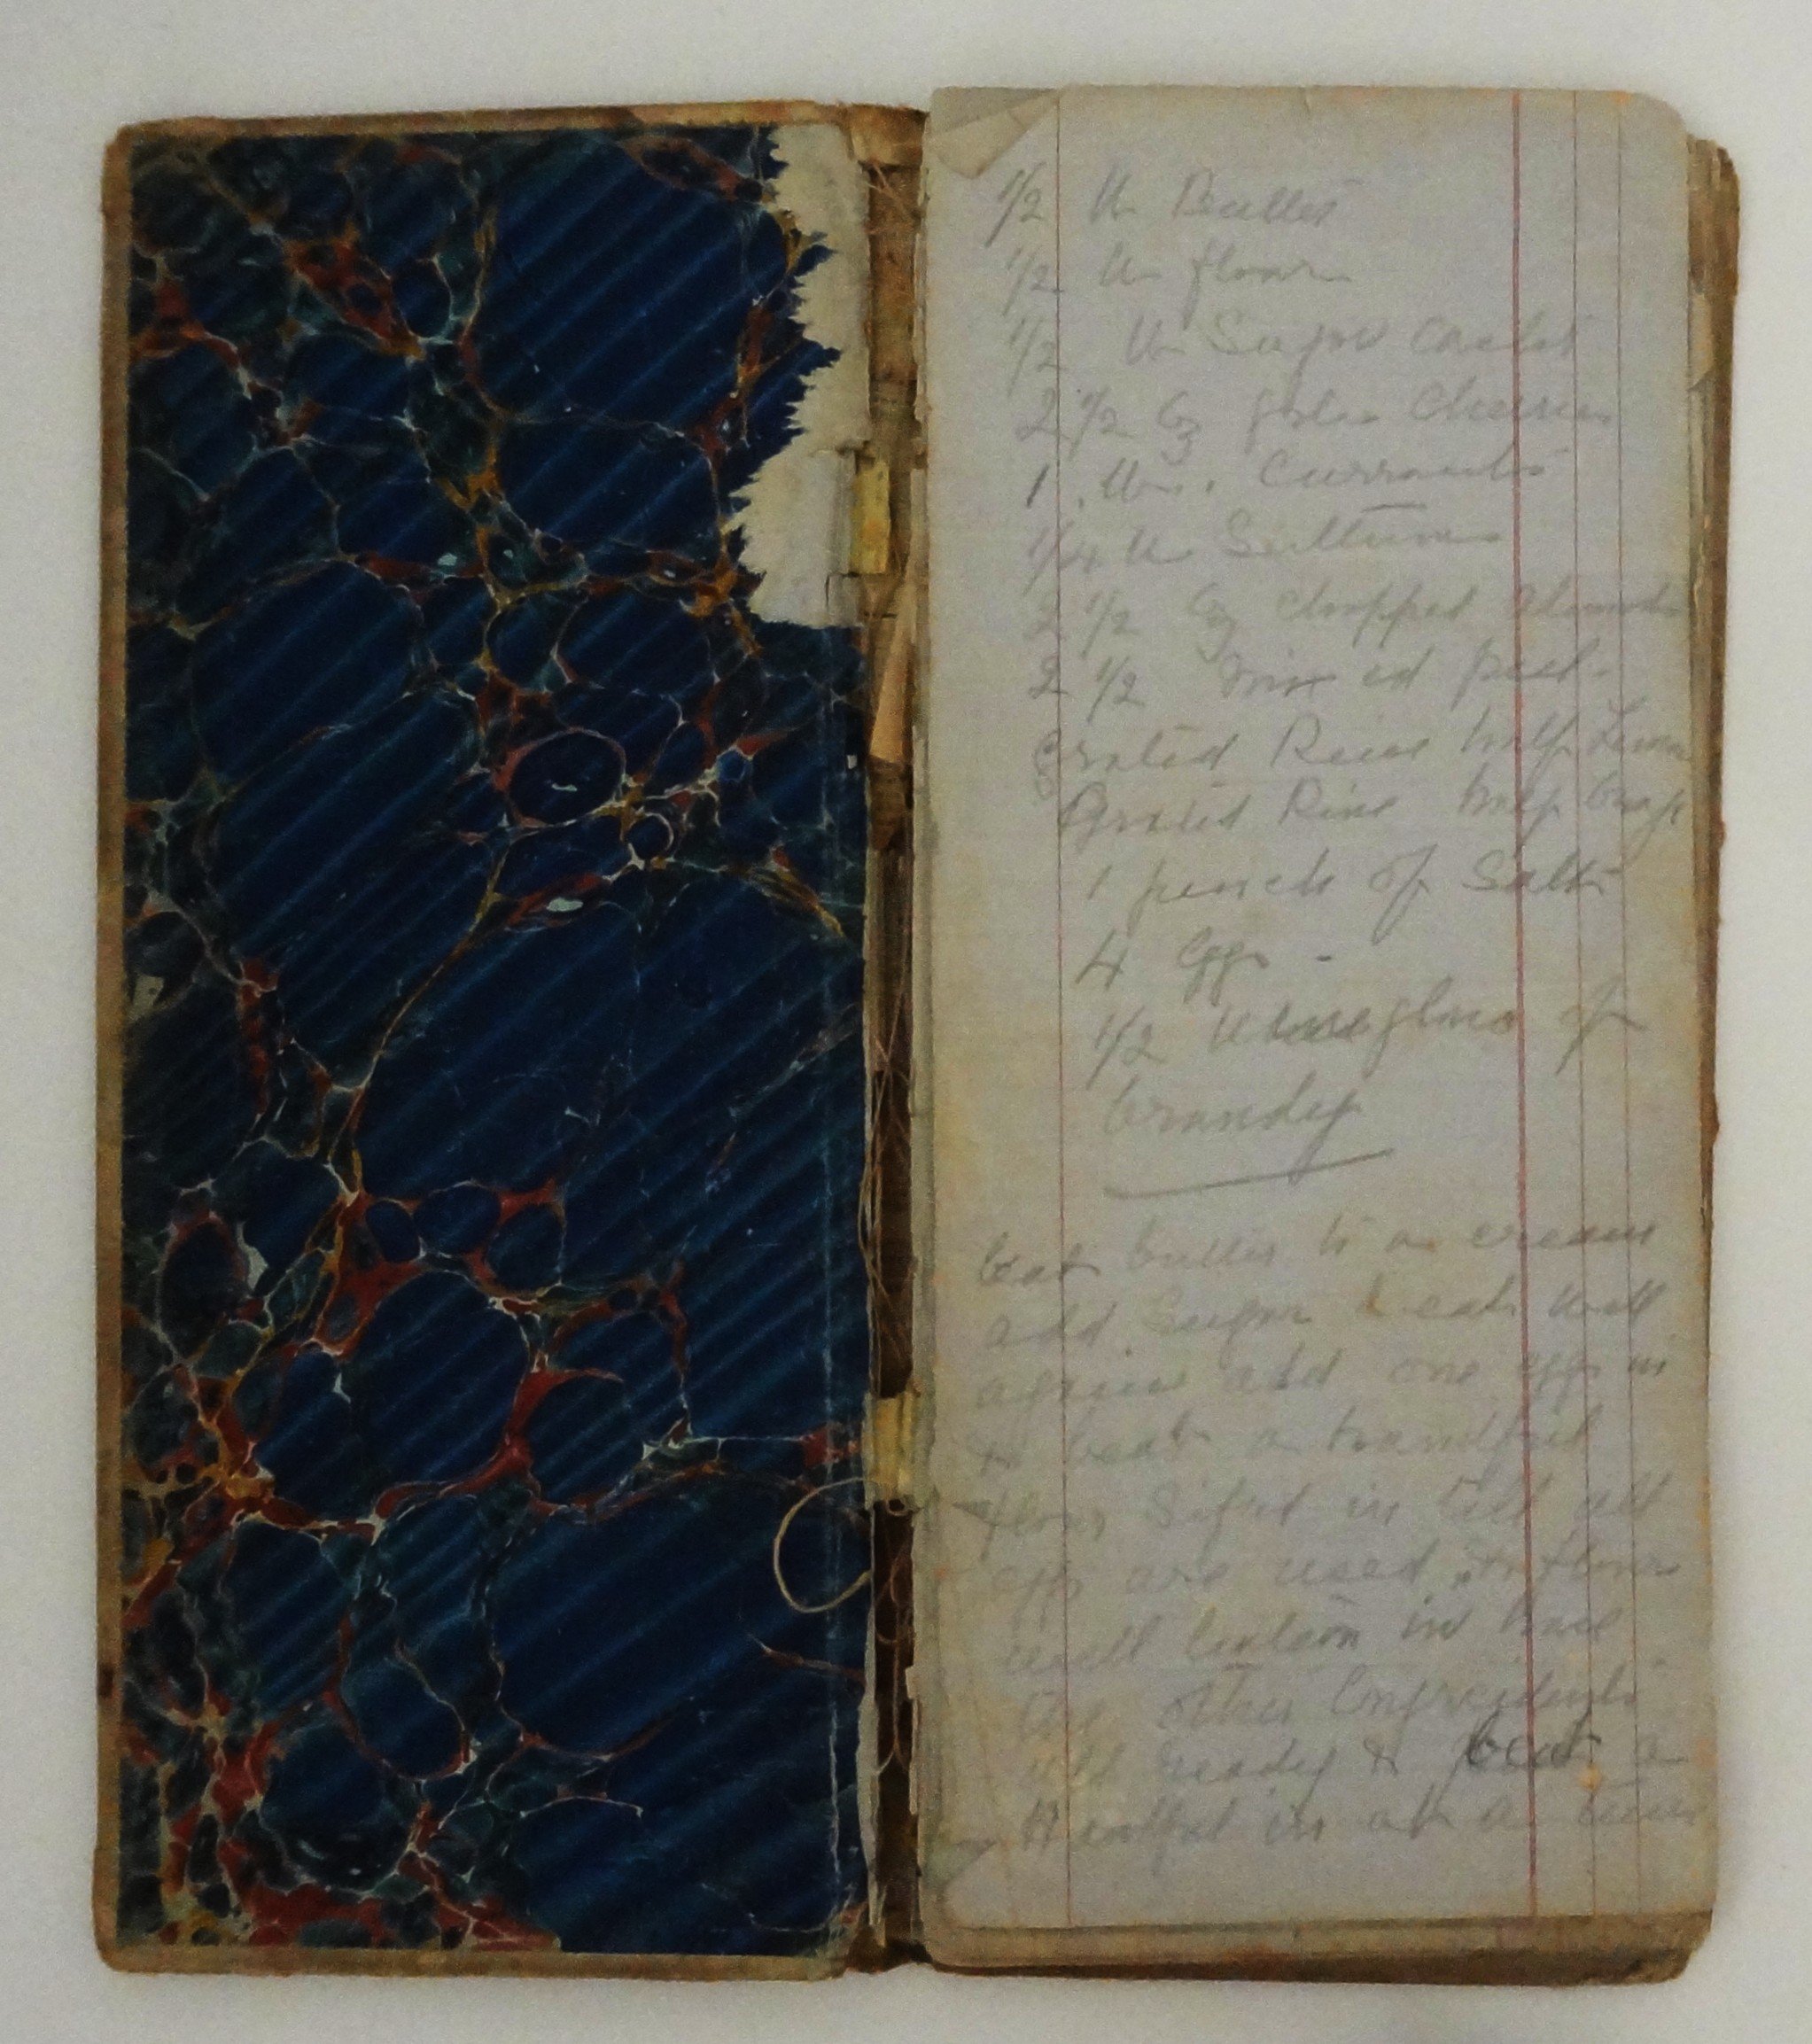 1/2 lb Butter
1/2 lb flour
1/2 lb Sugar Caster
2 1/2 oz Cherries
1 lb. Currants
1/4 lb Sultanas
2 1/2 oz chopped Almonds
2 1/2 mixed peel.
Grated Rine half Lemon
Grated Rine half
1 pinch of Salt
4 Eggs -
1/2 Wineglass of
brandy
beat butter to a cream
add Sugar beat well
again add one egg in
& beat a handful
flour Sifted in till all
eggs are used & flour
well beaten in have
other Ingredients
all ready & beat a
Handful in at a time